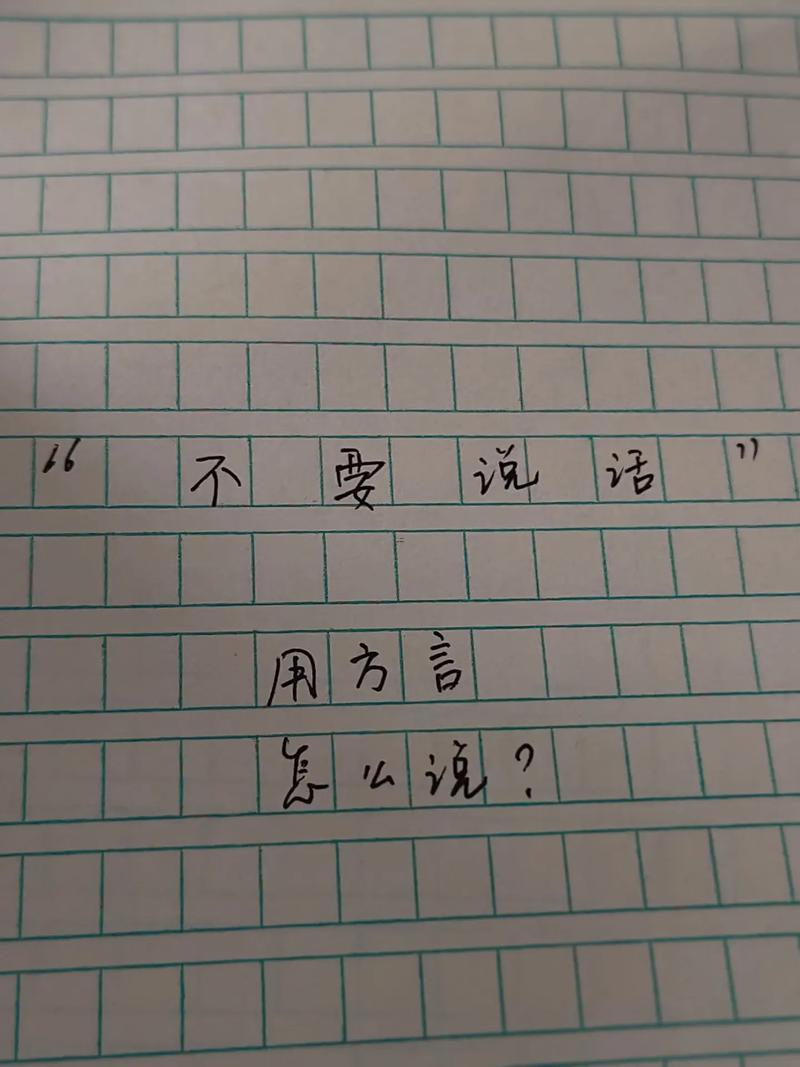 “不要说话”
用方言
怎么说？